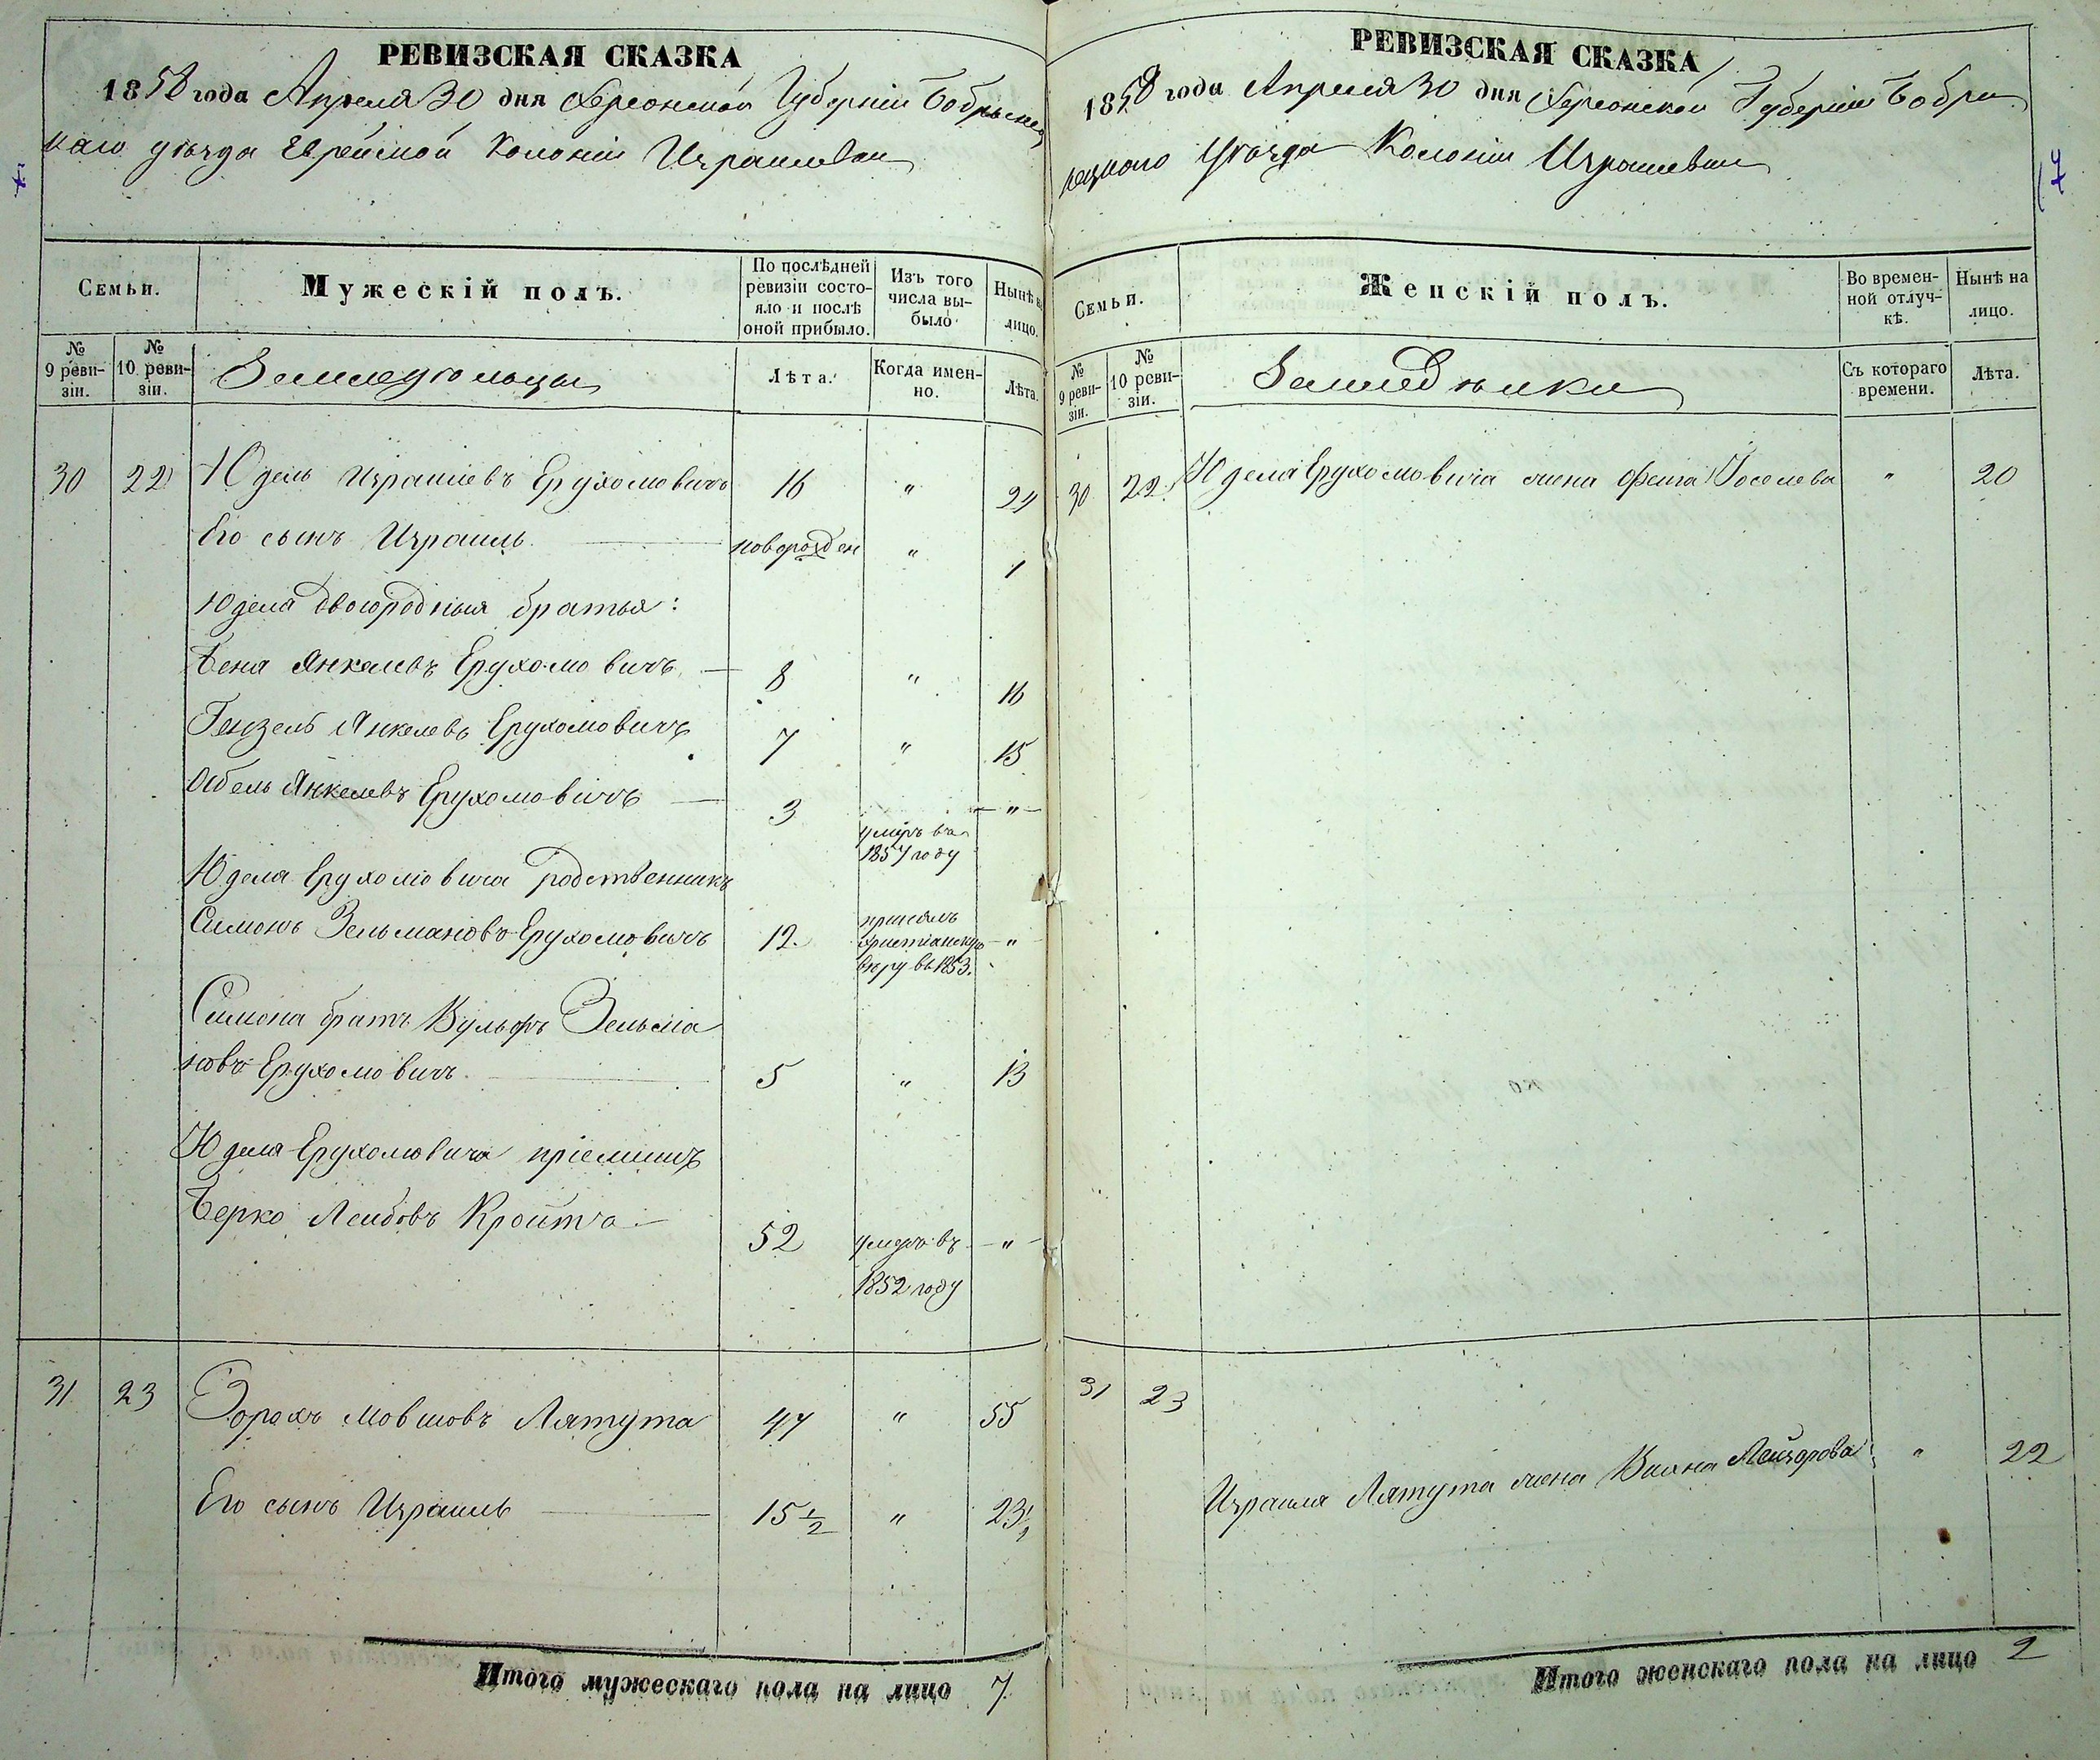 РЕВИЗСКАЯ СКАЗКА
1858 года Апреля 30 дня Херсонской Губерніи Бобринец
каго уѣзда Еврейской Колоніи Израилевки
Семьи.
Мужескій полъ.
По послѣдней ревизіи состояло и послѣ оной прибыло.
Изъ того числа выбыло
Нынѣ на лицо.
№ 9 ревизіи.
№ 10 ревизіи.
Земледѣльцы
Лѣта.
Когда именно.
Лѣта.
30 22 Юдель Израилевъ Ерухомовичъ 16 " 24
Его сынъ Израиль новорожден " 1
Юделя двоюродныя братья:
Бена Янкелевъ Ерухомовичъ 8 " 16
Гензель Янкелевъ Ерухомовичъ 7 " 15
Абель Янкелевъ Ерухомовичъ 3 умеръ въ 1857 году "
Юделя Ерухомовича родственникъ
Симонъ Зельмановъ Ерухомовичъ 12 принялъ христіанскую вѣру въ 1853. "
Симона братъ Вульфъ Зельма
новъ Ерухомовичъ 5 " 13
Юделя Ерухомовича пріемышъ
Берко Лейбовъ Кройтъ 52 умеръ въ 1852 году "
31 23 Зорахъ Мовшовъ Лятута 47 " 55
Его сынъ Израиль 15 1/2 " 23 1/2
Итого мужескаго пола на лицо 7
РЕВИЗСКАЯ СКАЗКА
1858 года Апреля 30 дня Херсонской Губерніи Бобри
нецкаго Уѣзда Колоніи Израилевки
7
Семьи.
Женскій полъ.
Во временной отлучкѣ.
Нынѣ на лицо.
№ 9 ревизіи.
№ 10 ревизіи.
Земледѣлки
Съ котораго времени.
Лѣта.
30 22 Юделя Ерухомовича жена Фейга Іоселева " 20
31 23
Израиля Лятута жена Лейзорова " 22
Итого женскаго пола на лицо 2